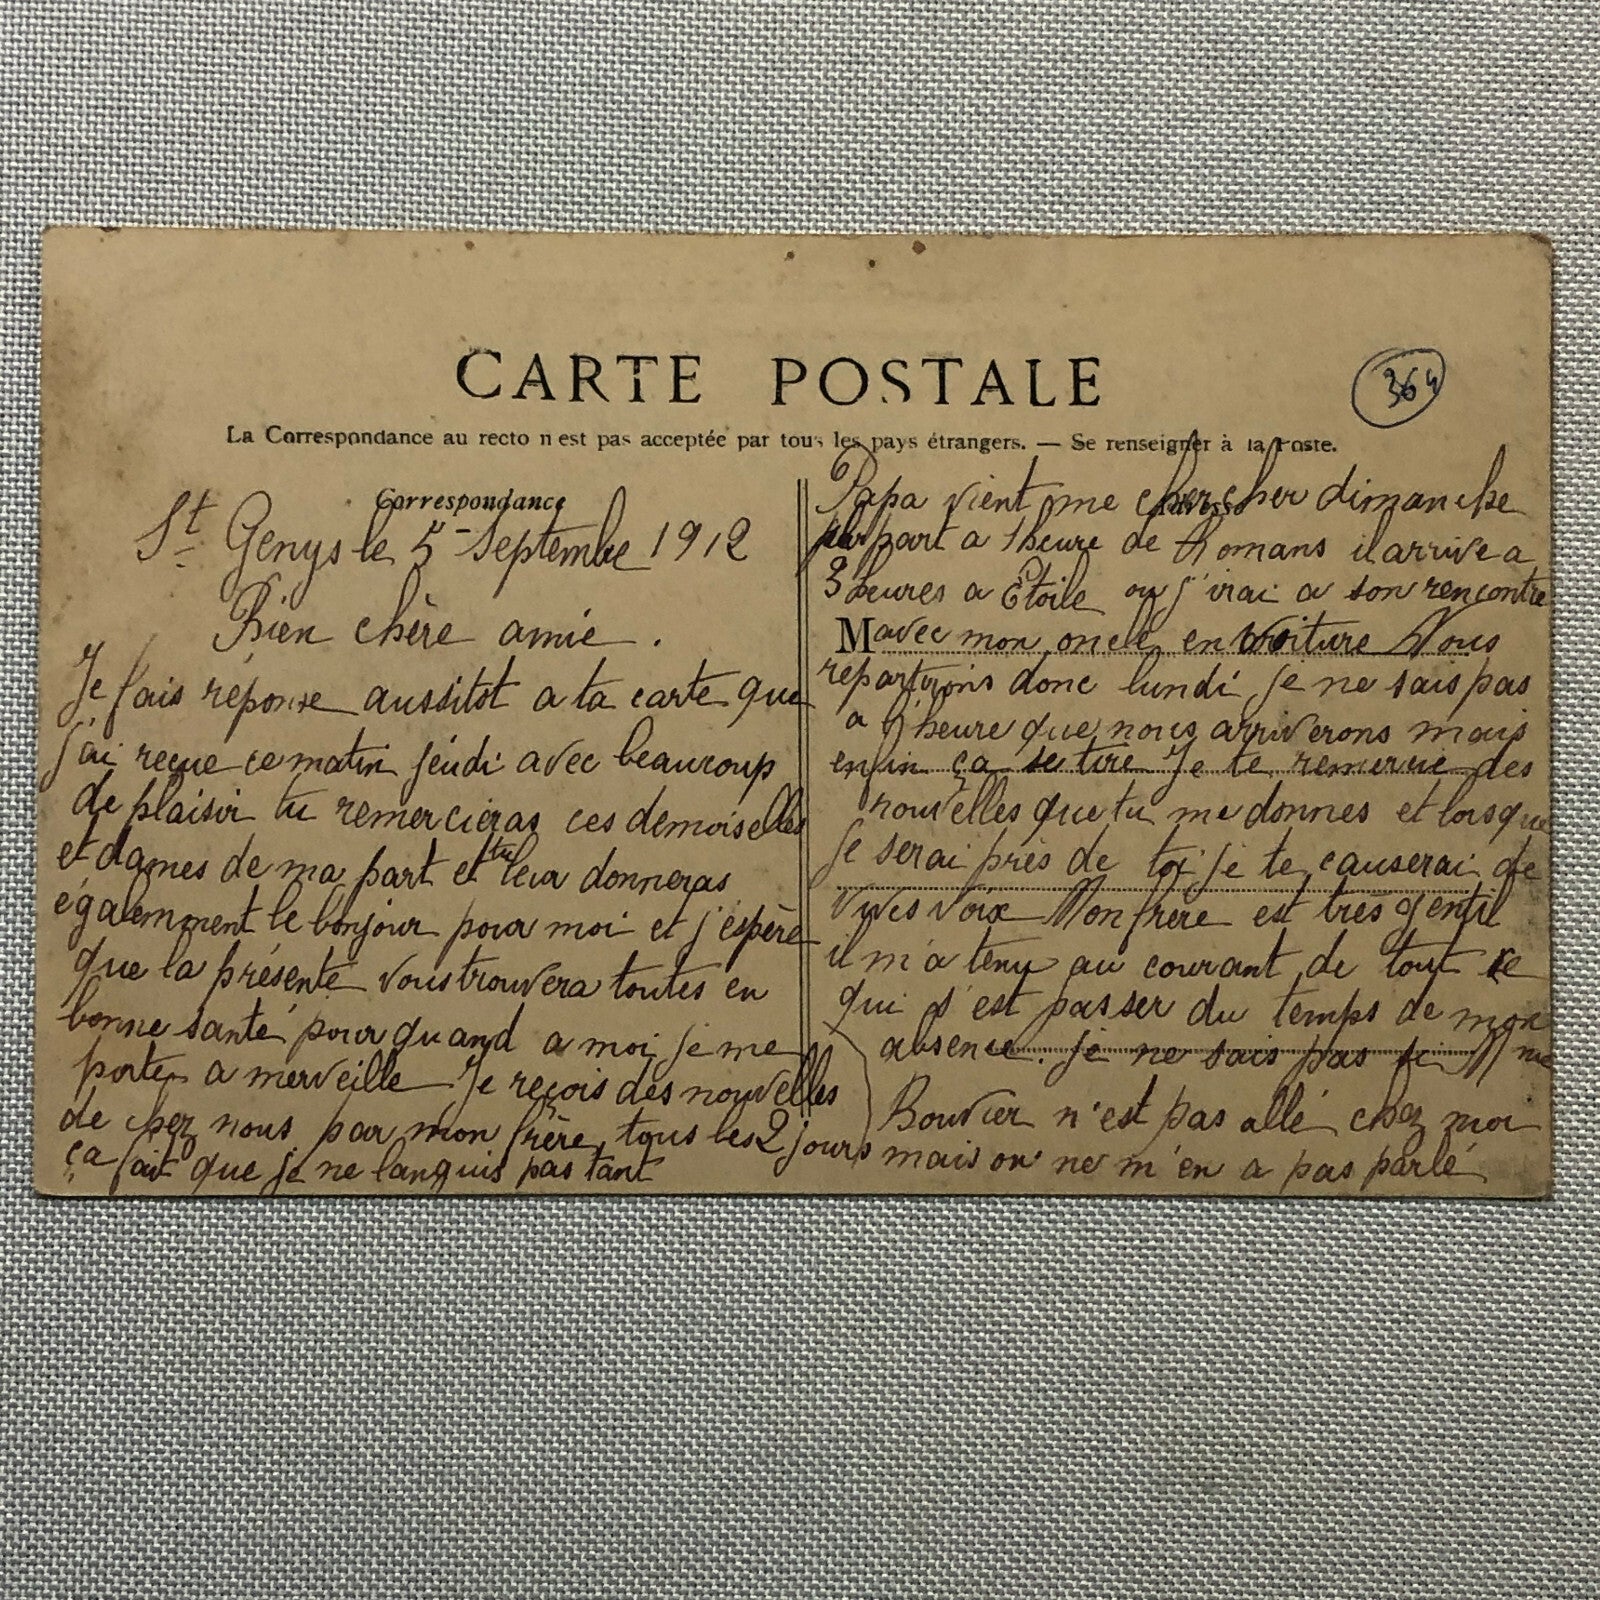 CARTE POSTALE
364
La Correspondance au recto n'est pas acceptée par tous les pays étrangers. — Se renseigner à la Poste.
Correspondance
St Genys le 5 Septembre 1912
Bien chère amie.
Je fais réponse aussitot a ta carte que
j'ai reçue ce matin jeudi avec beaucoup
de plaisir tu remercieras ces demoiselles
et dames de ma part et tu leur donneras
égalemment le bonjour pour moi et j'espère
que la présente vous trouvera toutes en
bonne santé pour quand a moi je me
porte a merveille Je reçois des nouvelles
de chez nous par mon frère tous les 2 jours
ça fait que je ne languis pas tant
Papa vient me chercher dimanche
part a 1 heure de Romans il arrive a
3 heures a Etoile ou j'irai a son rencontre
M avec mon oncle en voiture Nous
repartirons donc lundi je ne sais pas
a l'heure que nous arriverons mais
enfin ça se tire Je te remercie des
nouvelles que tu me donnes et lorsque
je serai près de toi je te causerai de
vives voix Mon frère est très gentil
il m'a tenu au courant de tout ce
qui s'est passer du temps de mon
absence. je ne sais pas si Mme
Bouvier n'est pas allé chez moi
mais on ne m'en a pas parlé